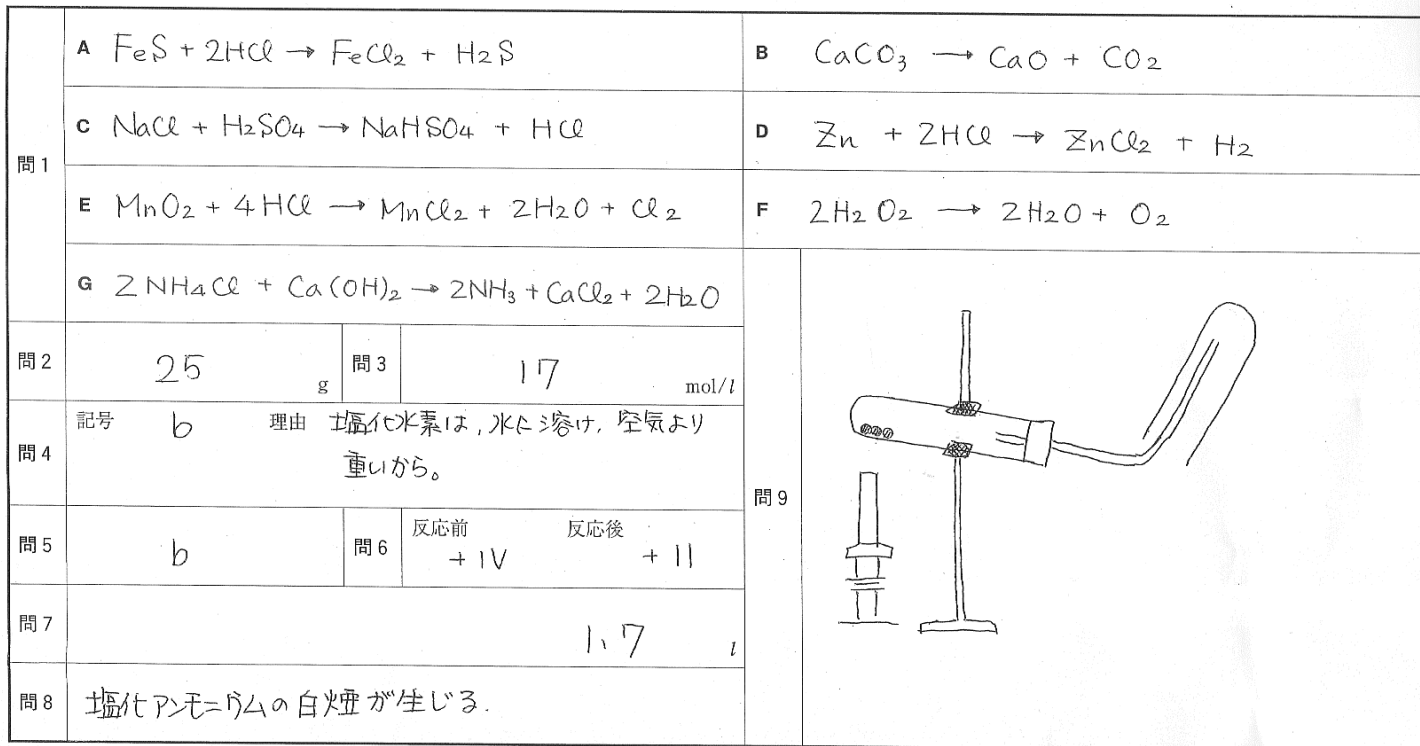 問1
A FeS + 2HCl → FeCl₂ + H₂S
B CaCO₃ → CaO + CO₂
C NaCl + H₂SO₄ → NaHSO₄ + HCl
D Zn + 2HCl → ZnCl₂ + H₂
E MnO₂ + 4HCl → MnCl₂ + 2H₂O + Cl₂
F 2H₂O₂ → 2H₂O + O₂
G 2NH₄Cl + Ca(OH)₂ → 2NH₃ + CaCl₂ + 2H₂O
問2 25 g
問3 17 mol/l
問4 記号 b 理由 塩化水素は,水に溶け,空気より
重いから。
問5 b
問6 反応前 反応後
+IV +II
問7 1.7 l
問8 塩化アンモニウムの白煙が生じる.
問9